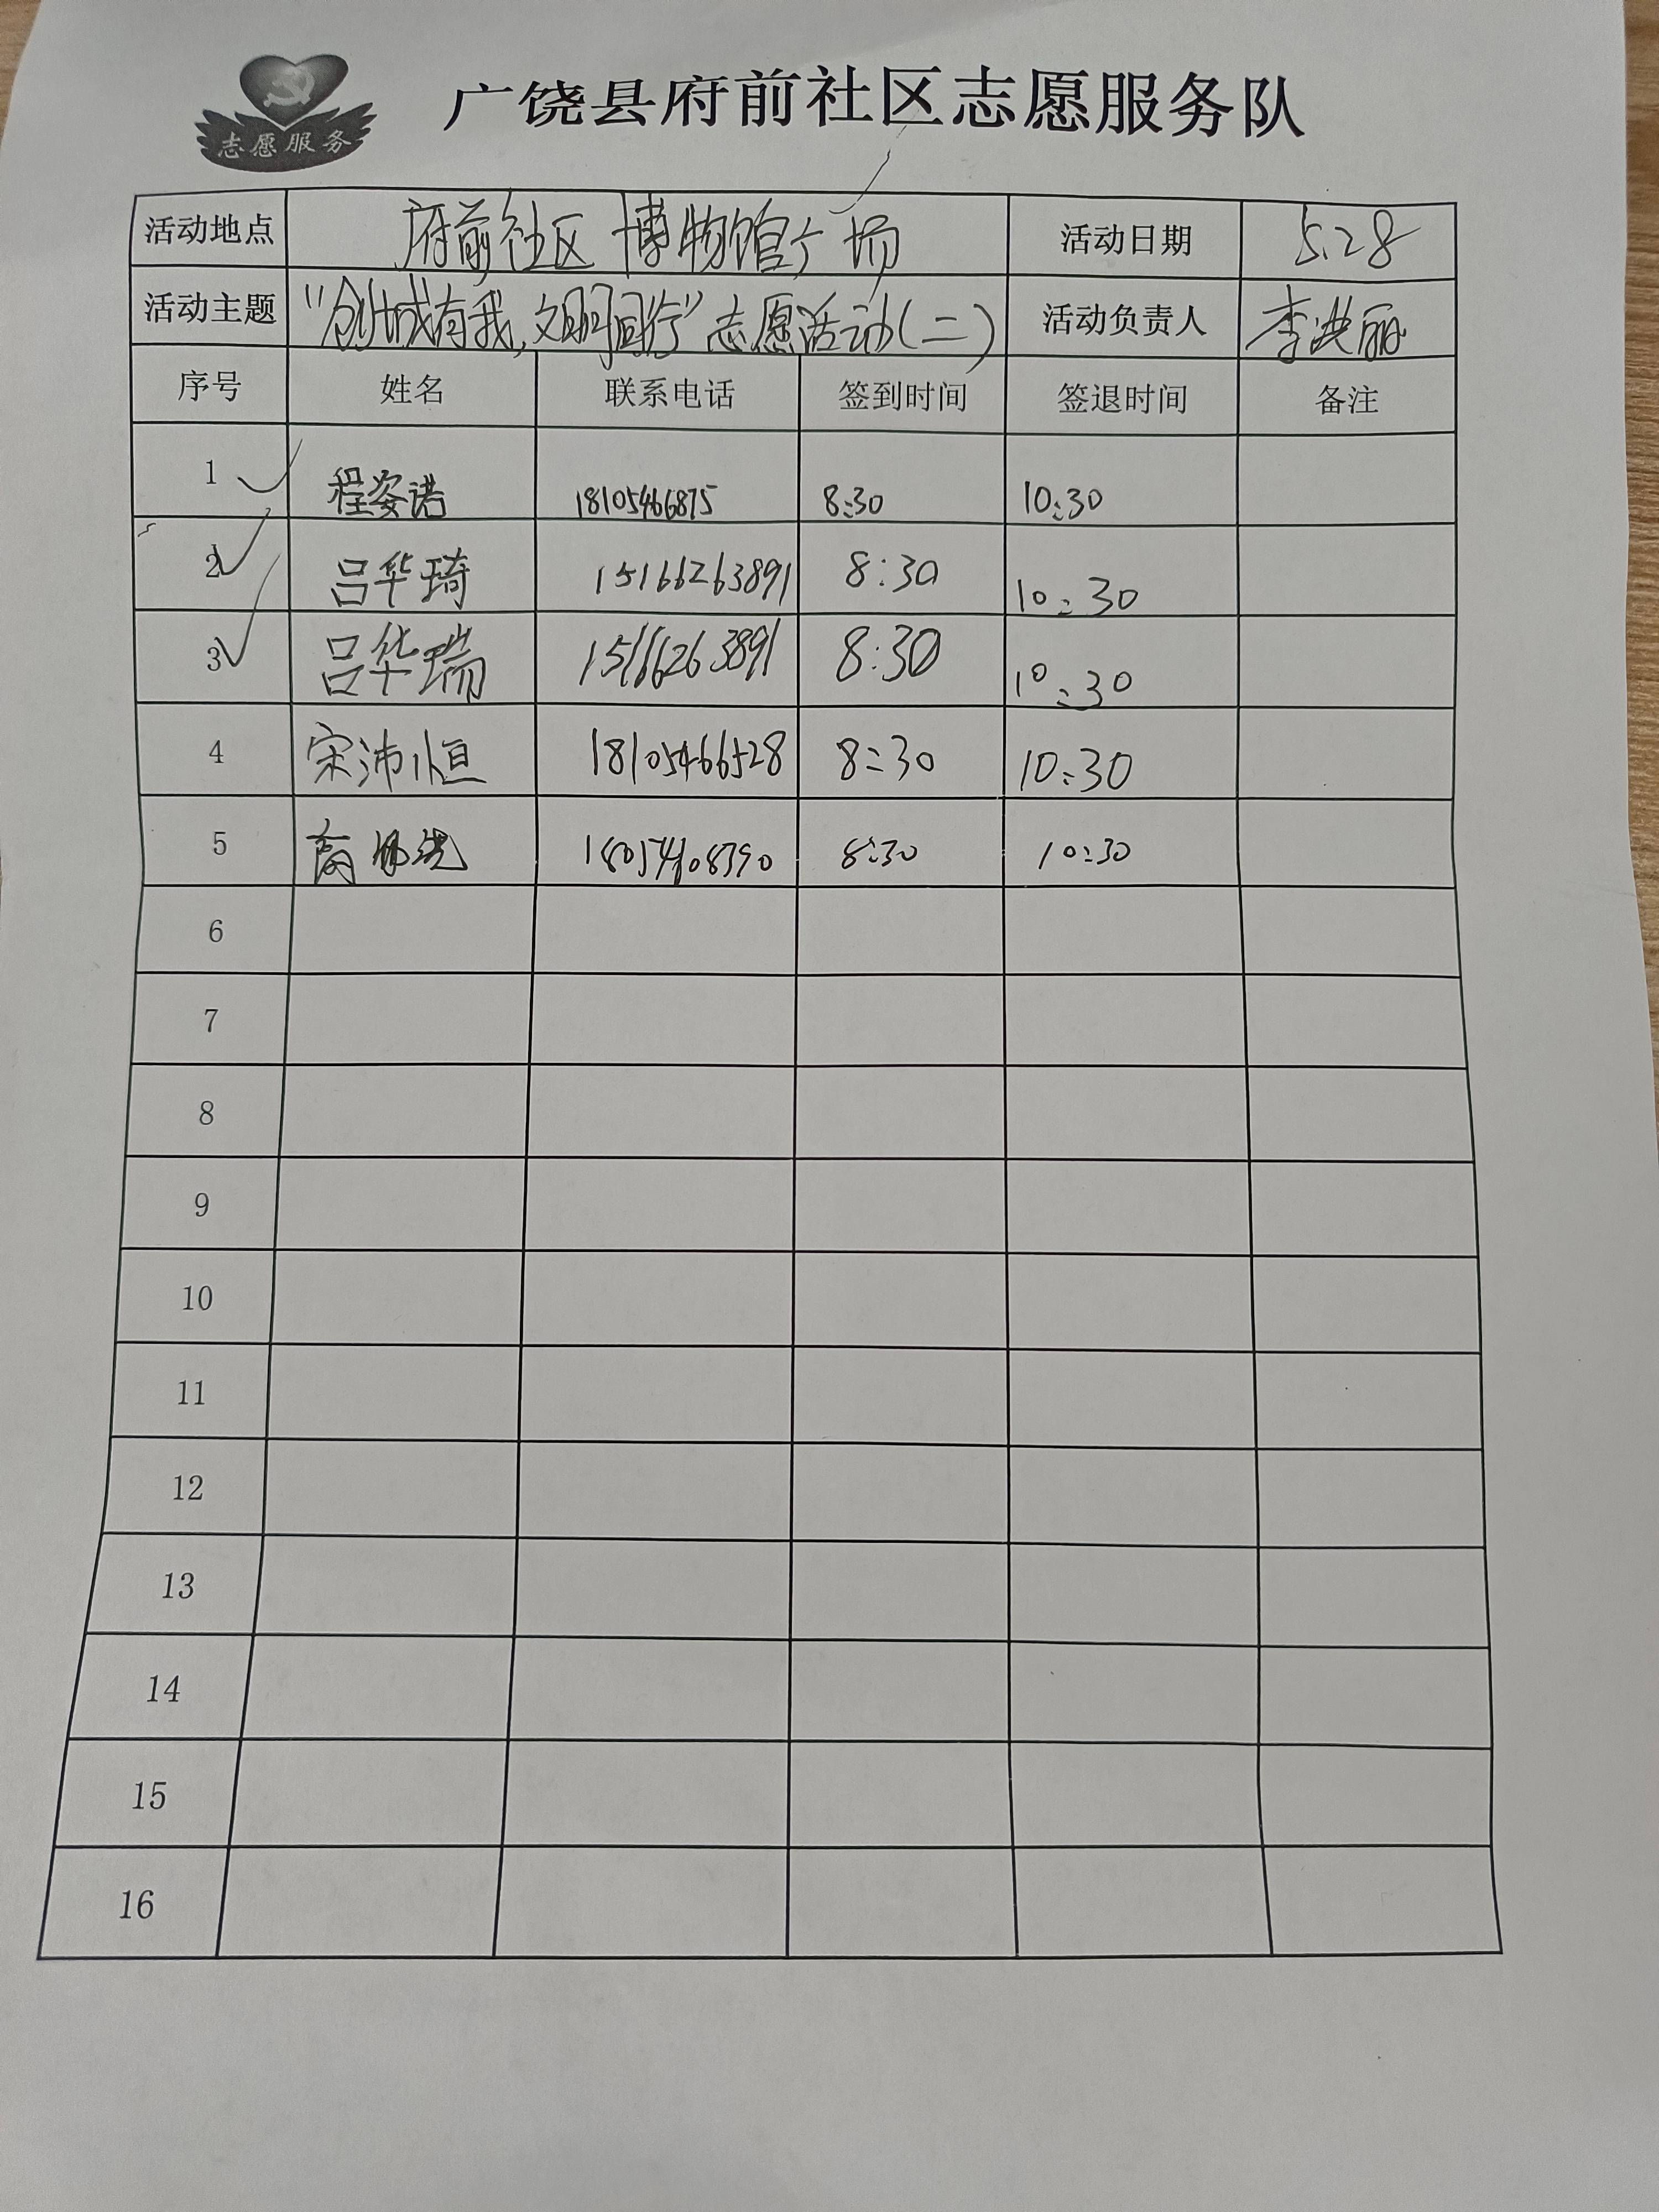 志愿服务
广饶县府前社区志愿服务队
活动地点 府前社区 博物馆广场 活动日期 5.28
活动主题 "创城有我,文明同行"志愿活动(二) 活动负责人 李洪丽
序号 姓名 联系电话 签到时间 签退时间 备注
1 程姿诺 18105466875 8:30 10:30
2 吕华琦 15166263891 8:30 10:30
3 吕华瑞 15166263891 8:30 10:30
4 宋沛恒 18105466528 8:30 10:30
5 8:30 10:30
6
7
8
9
10
11
12
13
14
15
16